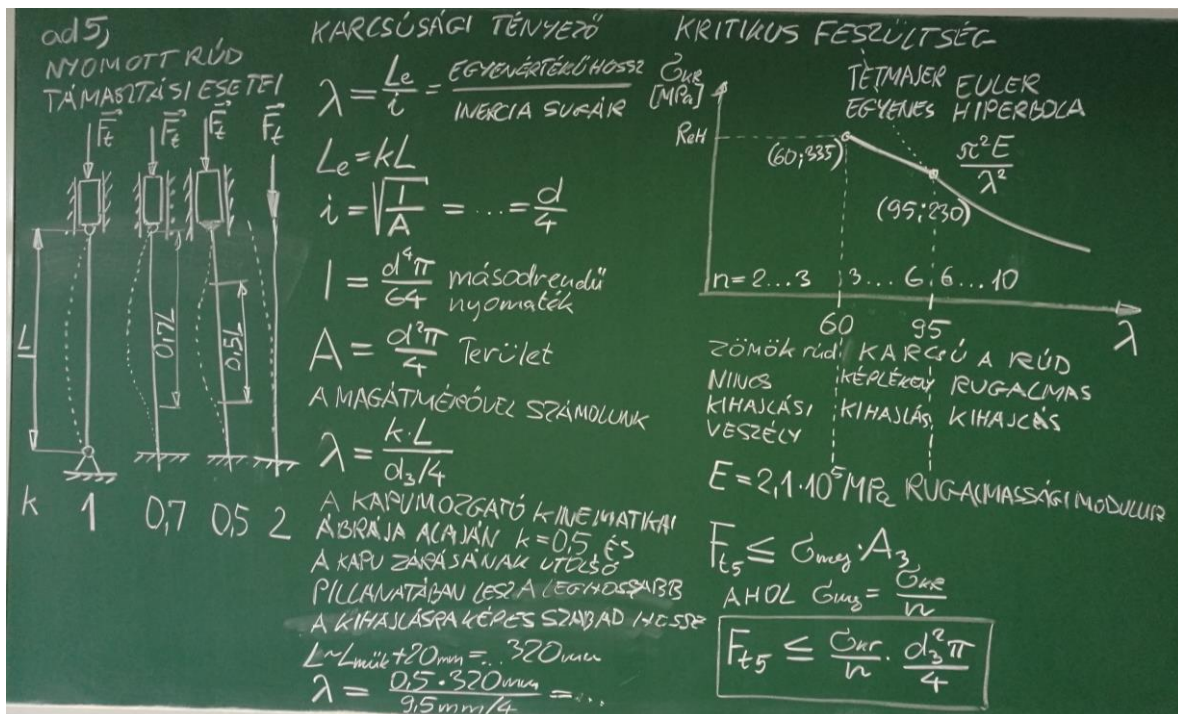 ad5,
NYOMOTT RÚD
TÁMASZTÁSI ESETEI
F⃗t F⃗t F⃗t F⃗t
L
0,7L
0,5L
k 1 0,7 0,5 2
KARCSÚSÁGI TÉNYEZŐ
λ = Le/i = EGYENÉRTÉKŰ HOSSZ/INERCIA SUGÁR
Le = kL
i = √(I/A) = ... = d/4
I = d⁴π/64 másodrendű
nyomaték
A = d²π/4 Terület
A MAGÁTMÉRŐVEL SZÁMOLUNK
λ = k·L/(d₃/4)
A KAPUMOZGATÓ KINEMATIKAI
ÁBRÁJA ALAJÁN k=0,5 ÉS
A KAPU ZÁRÁSÁNAK UTOLSÓ
PILLANATÁBAN LESZ A LEGHOSSABB
A KIHAJLÁSRA KÉPES SZABAD HOSSZ
L~Lmük+20mm=...320mm
λ = 0,5·320mm/(9,5mm/4) =...
KRITIKUS FESZÜLTSÉG
σKR
[MPa]
TETMAJER EULER
EGYENES HIPERBOLA
ReH
(60;335)
π²E/λ²
(95;230)
n=2...3 3...6 6...10
60 95 λ
ZÖMÖK rúd KARCSÚ A RÚD
NINCS KÉPLÉKENY RUGALMAS
KIHAJLÁSI KIHAJLÁS KIHAJLÁS
VESZÉLY
E=2,1·10⁵MPa RUGALMASSÁGI MODULUSZ
Ft5 ≤ σmeg·A₃
AHOL σmeg = σKR/n
Ft5 ≤ σKr/n · d₃²π/4